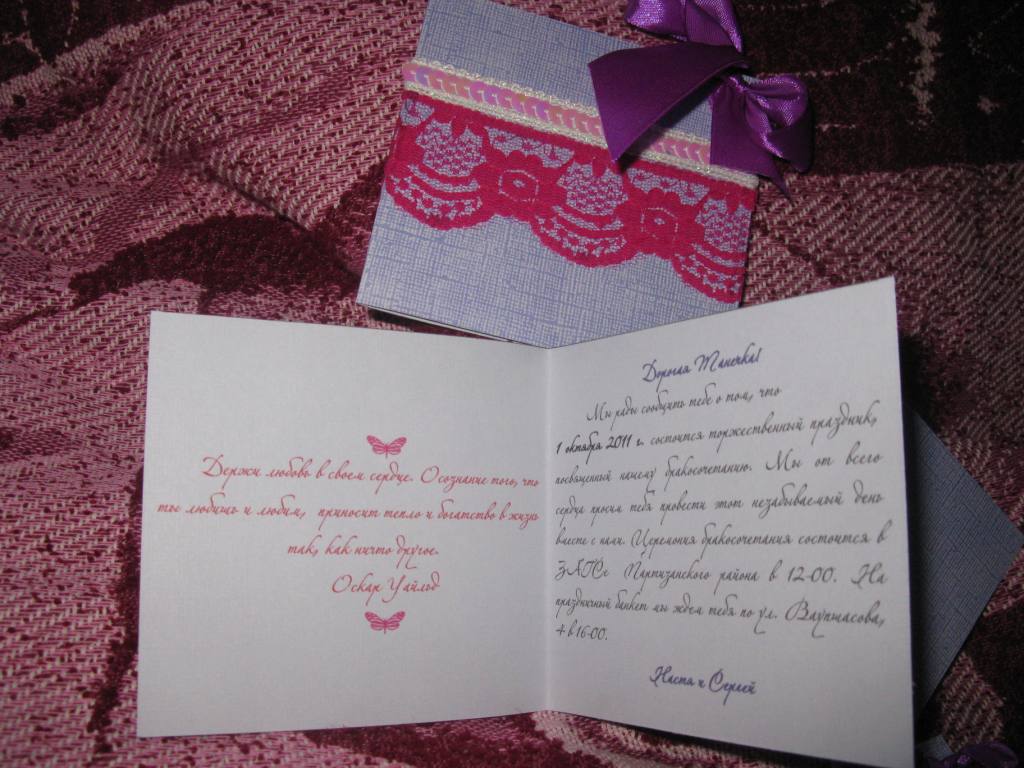 Держи любовь в своем сердце. Осознание того, что
ты любишь и любим, приносит тепло и богатство в жизнь
так, как ничто другое.
Оскар Уайльд
Дорогая Танечка!
Мы рады сообщить тебе о том, что
1 октября 2011 г. состоится торжественный праздник,
посвященный нашему бракосочетанию. Мы от всего
сердца просим тебя провести этот незабываемый день
вместе с нами. Церемония бракосочетания состоится в
ЗАГСе Партизанского района в 12-00. На
праздничный банкет мы ждем тебя по ул. Ваупшасова,
4 в 16-00.
Настя и Сергей